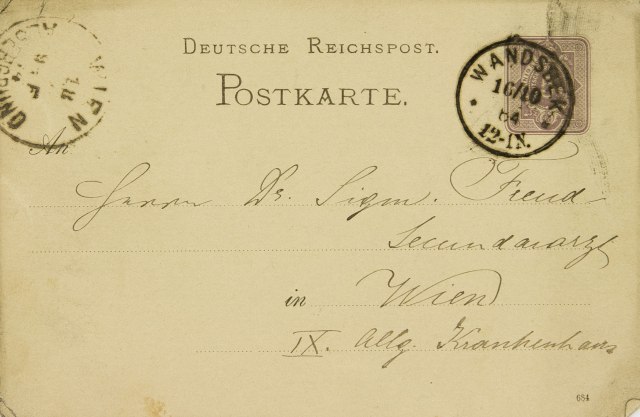 DEUTSCHE REICHSPOST.
POSTKARTE.
WANDSBEK
16/10
84
12-1N.
WIEN
18
An
Herrn Dr. Sigm. Freud
Secundararzt
in Wien
IX. Allg. Krankenhaus
684